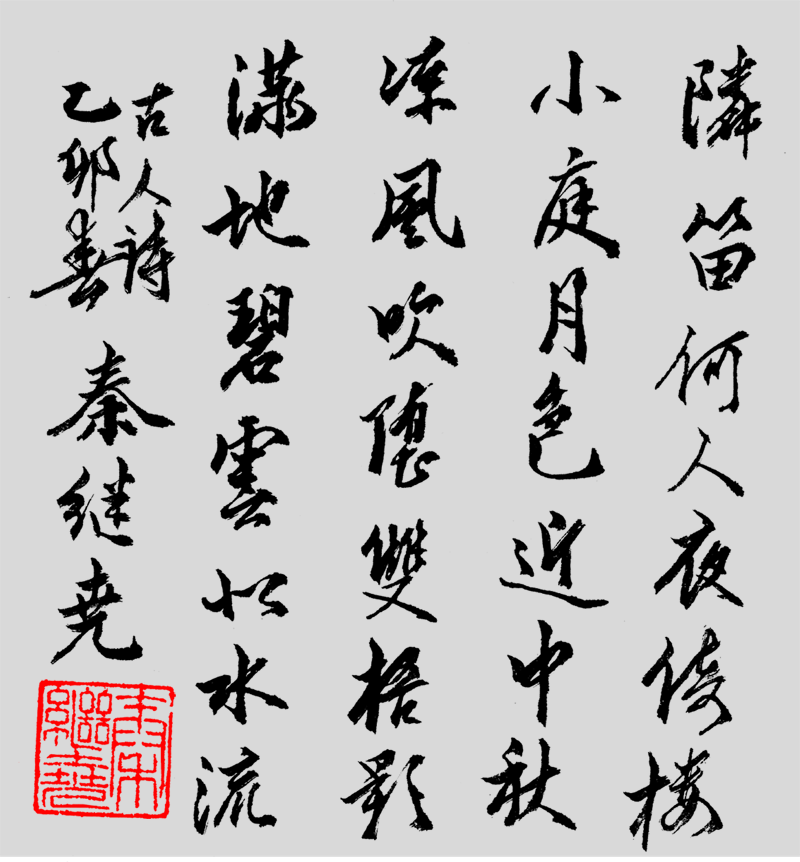 隣笛何人夜倚楼
小庭月色近中秋
凉風吹堕雙梧影
满地碧雲如水流
古人詩
乙卯春
秦继尧
秦繼堯